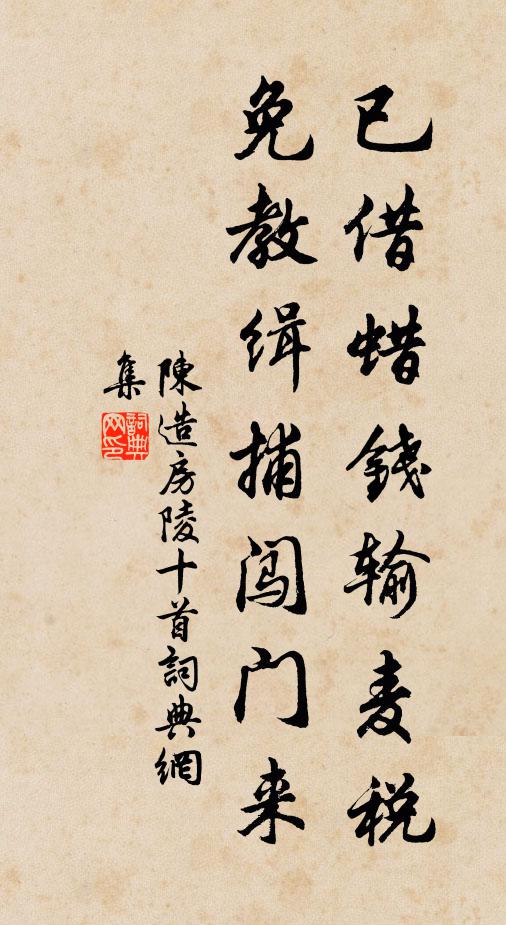 已借蜡錢输麦税
免教缉捕闯门来
陳造房陵十首詞典網
集
詞典
网印